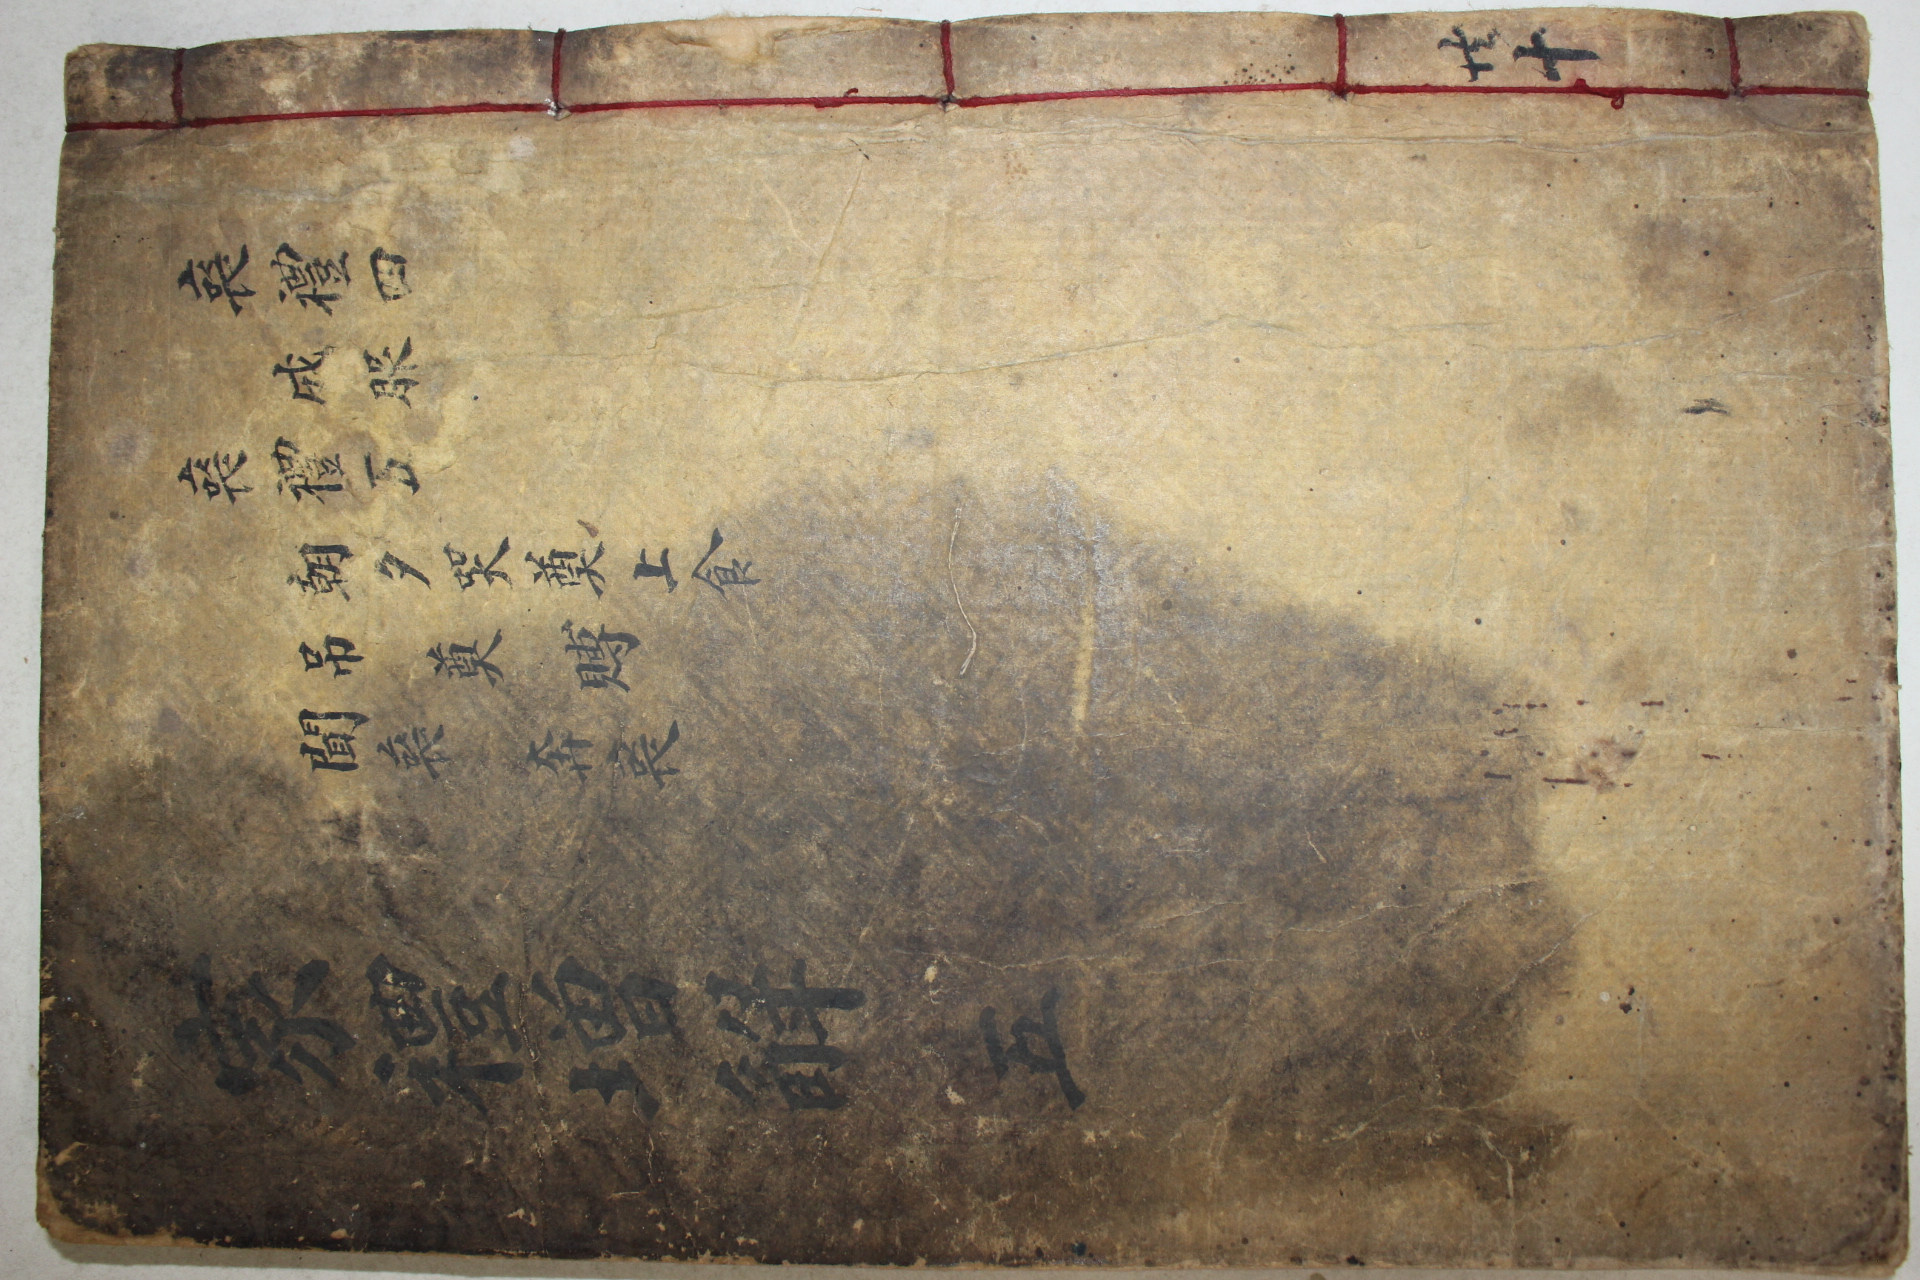 共十
喪禮四
成服
喪禮五
朝夕哭奠上食
吊奠賻
聞喪 奔喪
家禮增解 五